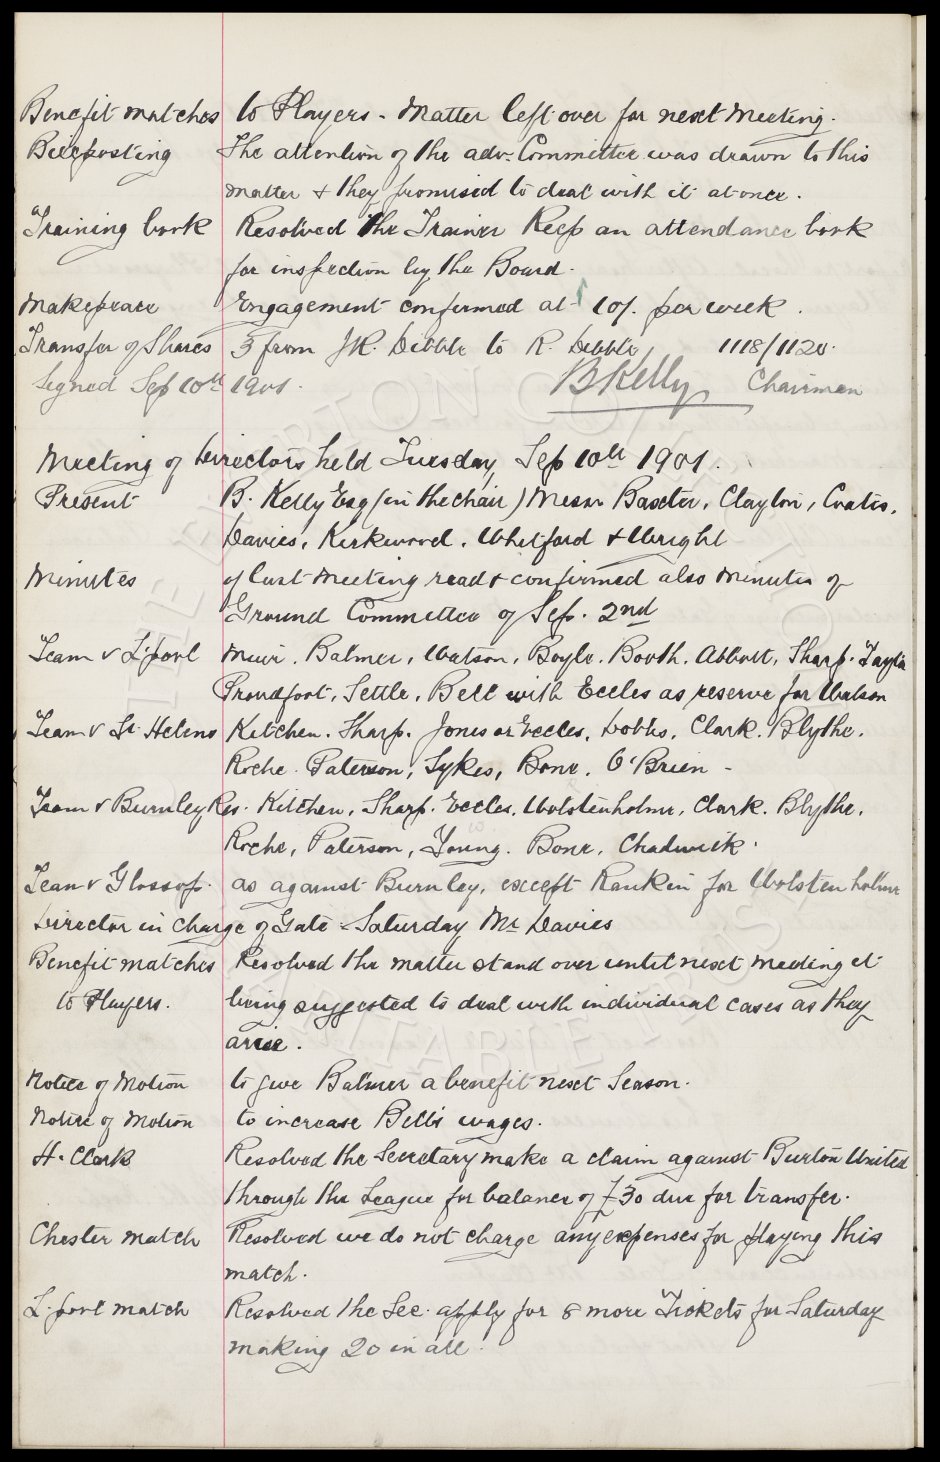 Benefit matches to Players - Matter left over for next Meeting.
Billposting The attention of the adv. Committee was drawn to this
matter & they promised to deal with it at once.
Training book Resolved the Trainer Keep an attendance book
for inspection by the Board.
Makepeace Engagement confirmed at 10/. per week.
Transfer of Shares 3 from JR. Dibble to R. Dibble, 1118/1120.
Signed Sep 10th 1901. B Kelly Chairman
Meeting of Directors held Tuesday, Sep 10th 1901.
Present B. Kelly Esq (in the chair) Messrs Baxter, Clayton, Coates,
Davies, Kirkwood, Whitford & Wright
Minutes of last Meeting read & confirmed also minutes of
Ground Committee of Sep. 2nd
Team v L'pool Muir. Balmer, Watson, Boyle. Booth. Abbott, Sharp. Taylor
Proudfoot, Settle, Bell with Eccles as reserve for Watson
Team v St Helens Kitchen. Sharp. Jones or Eccles, Dobbs, Clark. Blythe.
Roche. Paterson, Sykes, Bone. O'Brien -
Team v Burnley Res. Kitchen, Sharp. Eccles. Wolstenholme, Clark. Blythe.
Roche, Paterson, Young. Bone, Chadwick.
Team v Glossop. as against Burnley, except Rankin for Wolstenholme
Director in Charge of Gate - Saturday Mr Davies
Benefit matches Resolved the matter stand over until next meeting it
to Players. being suggested to deal with individual cases as they
arise.
Notice of Motion to give Balmer a benefit next Season.
Notice of Motion to increase Bell's wages.
H. Clark Resolved the Secretary make a claim against Burton United
through the League for balance of £30 due for transfer.
Chester match Resolved we do not charge any expenses for playing this
match.
L'pool match Resolved the Sec. apply for 8 more Tickets for Saturday
making 20 in all.